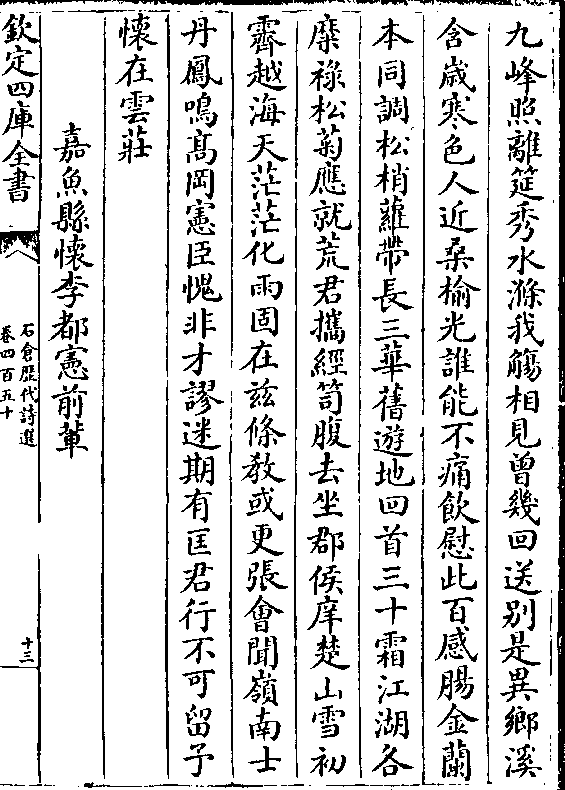 九峰照離筵秀水滌我觴相見曾幾回送别是異鄉溪
含嵗寒色人近桑榆光誰能不痛飲慰此百感腸金蘭
本同調松梢蘿帶長三華舊遊地回首三十霜江湖各
糜禄松菊應就荒君攜經笥腹去坐郡侯庠楚山雪初
霽越海天茫茫化雨固在兹條教或更張會聞嶺南士
丹鳳鳴髙岡憲臣愧非才謬迷期有匡君行不可留予
懷在雲莊
嘉魚縣懷李都憲前輩
欽定四庫全書
石倉歷代詩選
卷四百五十
十三